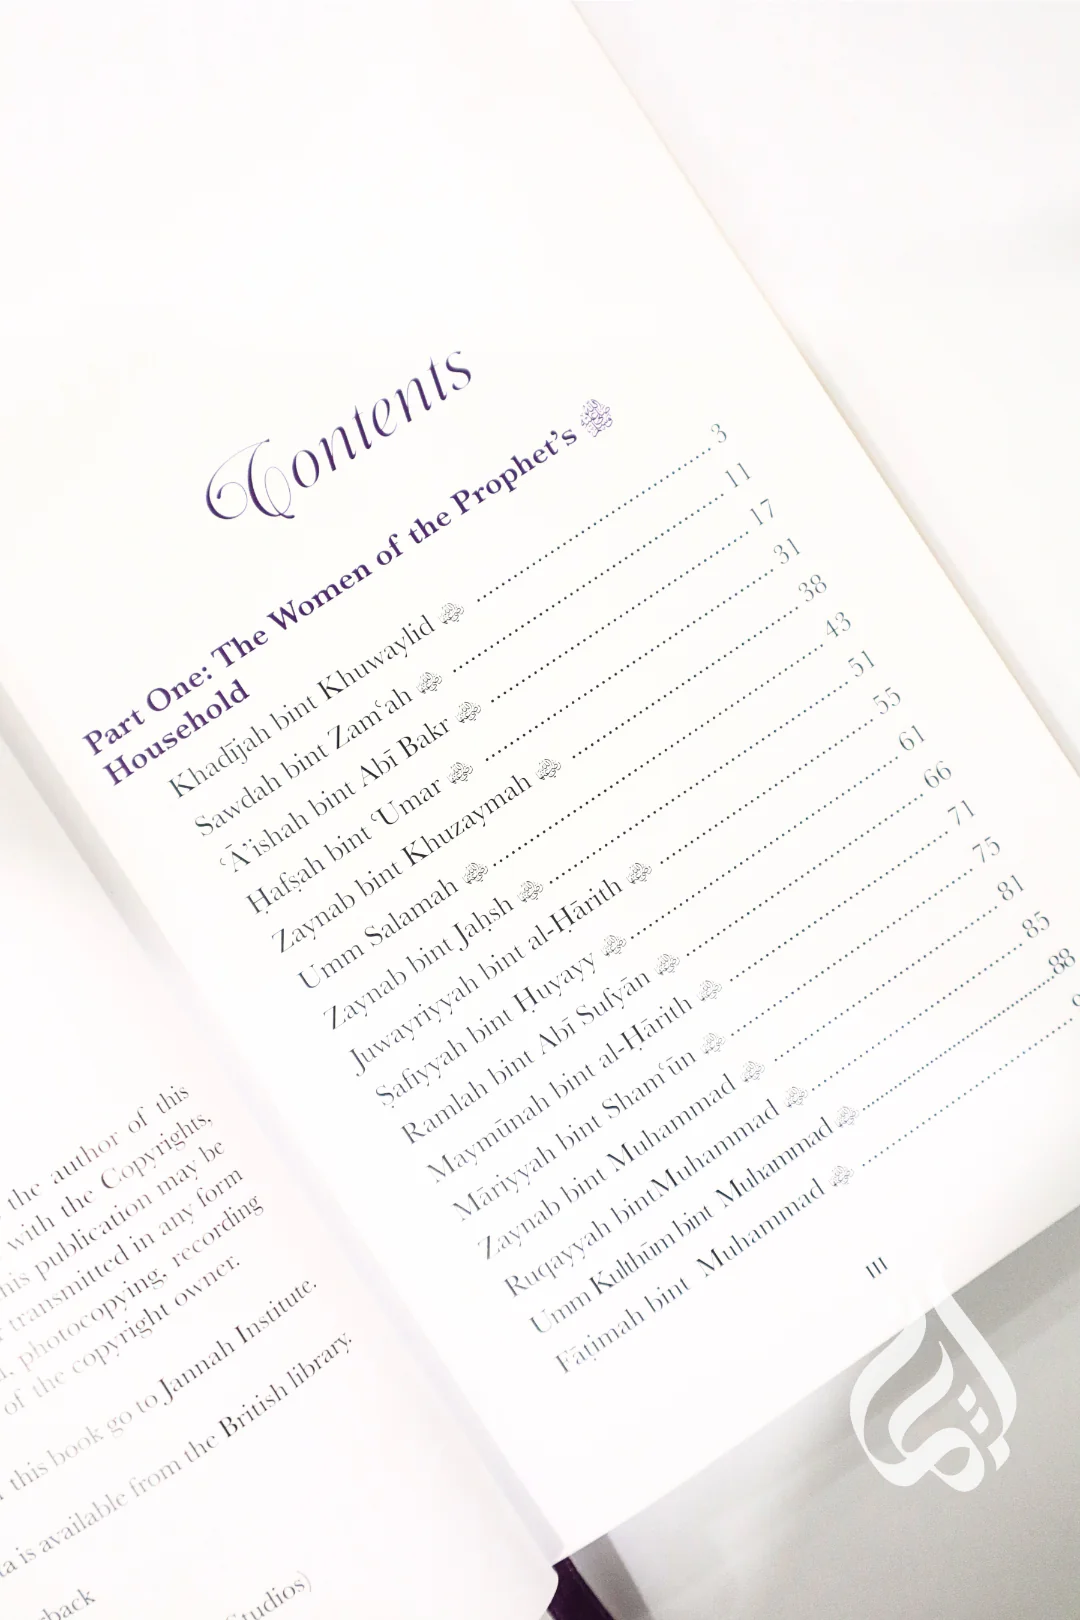 the author of this
with the Copyrights,
this publication may be
transmitted in any form
photocopying, recording
of the copyright owner.
this book go to Jannah Institute.
is available from the British library.
Contents
Part One: The Women of the Prophet's ﷺ
Household
Khadījah bint Khuwaylid ........ 3
Sawdah bint Zamʿah ........ 11
ʿĀ'ishah bint Abī Bakr ........ 17
Ḥafṣah bint ʿUmar ........ 31
Zaynab bint Khuzaymah ........ 38
Umm Salamah ........ 43
Zaynab bint Jaḥsh ........ 51
Juwayriyyah bint al-Ḥārith ........ 55
Ṣafiyyah bint Ḥuyayy ........ 61
Ramlah bint Abī Sufyān ........ 66
Maymūnah bint al-Ḥārith ........ 71
Māriyyah bint Shamʿūn ........ 75
Zaynab bint Muhammad ........ 81
Ruqayyah bintMuhammad ........ 85
Umm Kulthūm bint Muhammad ........ 88
Fāṭimah bint Muhammad ........
III